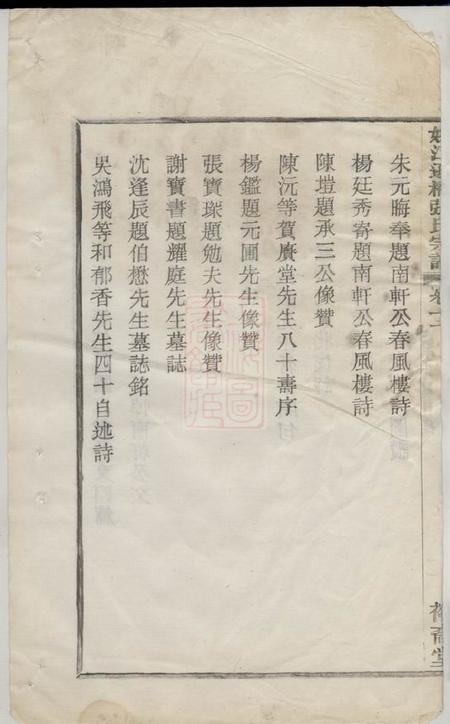 朱元晦奉題南軒公春風樓詩
楊廷秀寄題南軒公春風樓詩
陳塏題承三公像贊
陳沅等賀賡堂先生八十壽序
楊鑑題元圃先生像贊
張寶琛題勉夫先生像贊
謝寶書題耀庭先生墓誌
沈逢辰題伯懋先生墓誌銘
吳鴻飛等和郁香先生四十自述詩